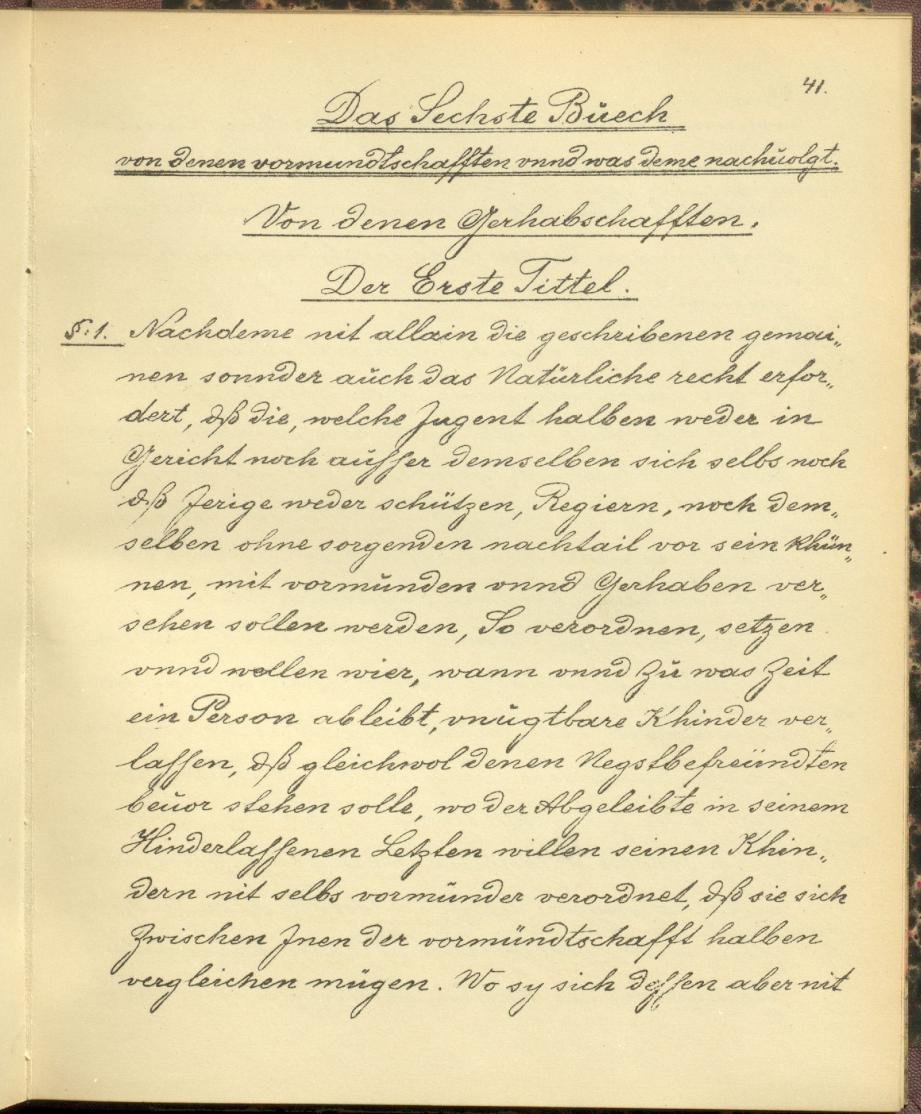 41.
Das Sechste Büech
von denen vormundtschafften vnnd was deme nachüolgt.
Von denen Gerhabschafften.
Der Erste Tittel.
§:1. Nachdeme nit allain die geschribenen gemai„
nen sonnder aüch das Natürliche recht erfor„
dert, dß die, welche Jugent halben weder in
Gericht noch aüsser demselben sich selbs noch
dß Jerige weder schützen, Regiern, noch dem„
selben ohne sorgenden nachtail vor sein khün„
nen, mit vormünden vnnd Gerhaben ver„
sehen sollen werden, So verordnen, setzen
vnnd wellen wier, wann vnnd zü was Zeit
ein Person ableibt, vnügtbare Khinder ver„
lassen, dß gleichwol denen Negstbefreündten
beüor stehen solle, wo der Abgeleibte in seinem
Hinderlassenen Letzten willen seinen Khin„
dern nit selbs vormünder verordnet, dß sie sich
zwischen Jnen der vormündtschafft halben
vergleichen mügen. Wo sy sich dessen aber nit